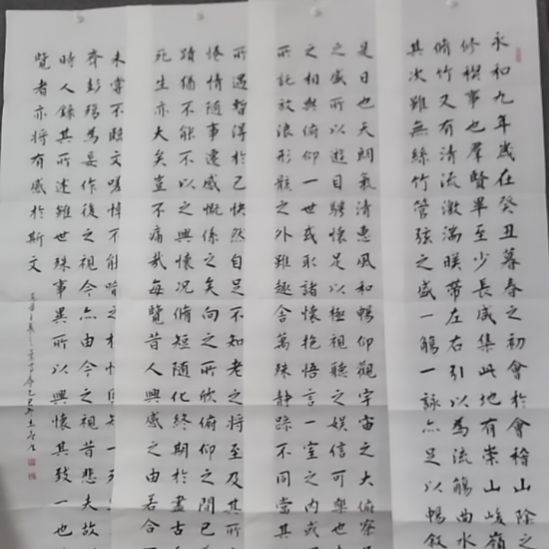 永和九年歲在癸丑暮春之初會於會稽山陰之
修稧事也羣賢畢至少長咸集此地有崇山峻嶺
脩竹又有清流激湍暎帶左右引以為流觴曲水
其次雖無絲竹管弦之盛一觴一詠亦足以暢敘
是日也天朗氣清惠風和暢仰觀宇宙之大俯察
之盛所以遊目騁懷足以極視聽之娛信可樂也
之相與俯仰一世或取諸懷抱悟言一室之內或
所託放浪形骸之外雖趣舍萬殊静躁不同當其
所遇暫得於己快然自足不知老之將至及其所
惓情随事遷感慨係之矣向之所欣俯仰之間已
蹟猶不能不以之興懷況脩短随化終期於盡古
死生亦大矣豈不痛哉每覽昔人興感之由若合
未嘗不臨文嗟悼不能
齊彭殤為妄作後之視今亦由今之視昔悲夫故
時人錄其所述雖世殊事異所以興懷其致一也
覽者亦將有感於斯文